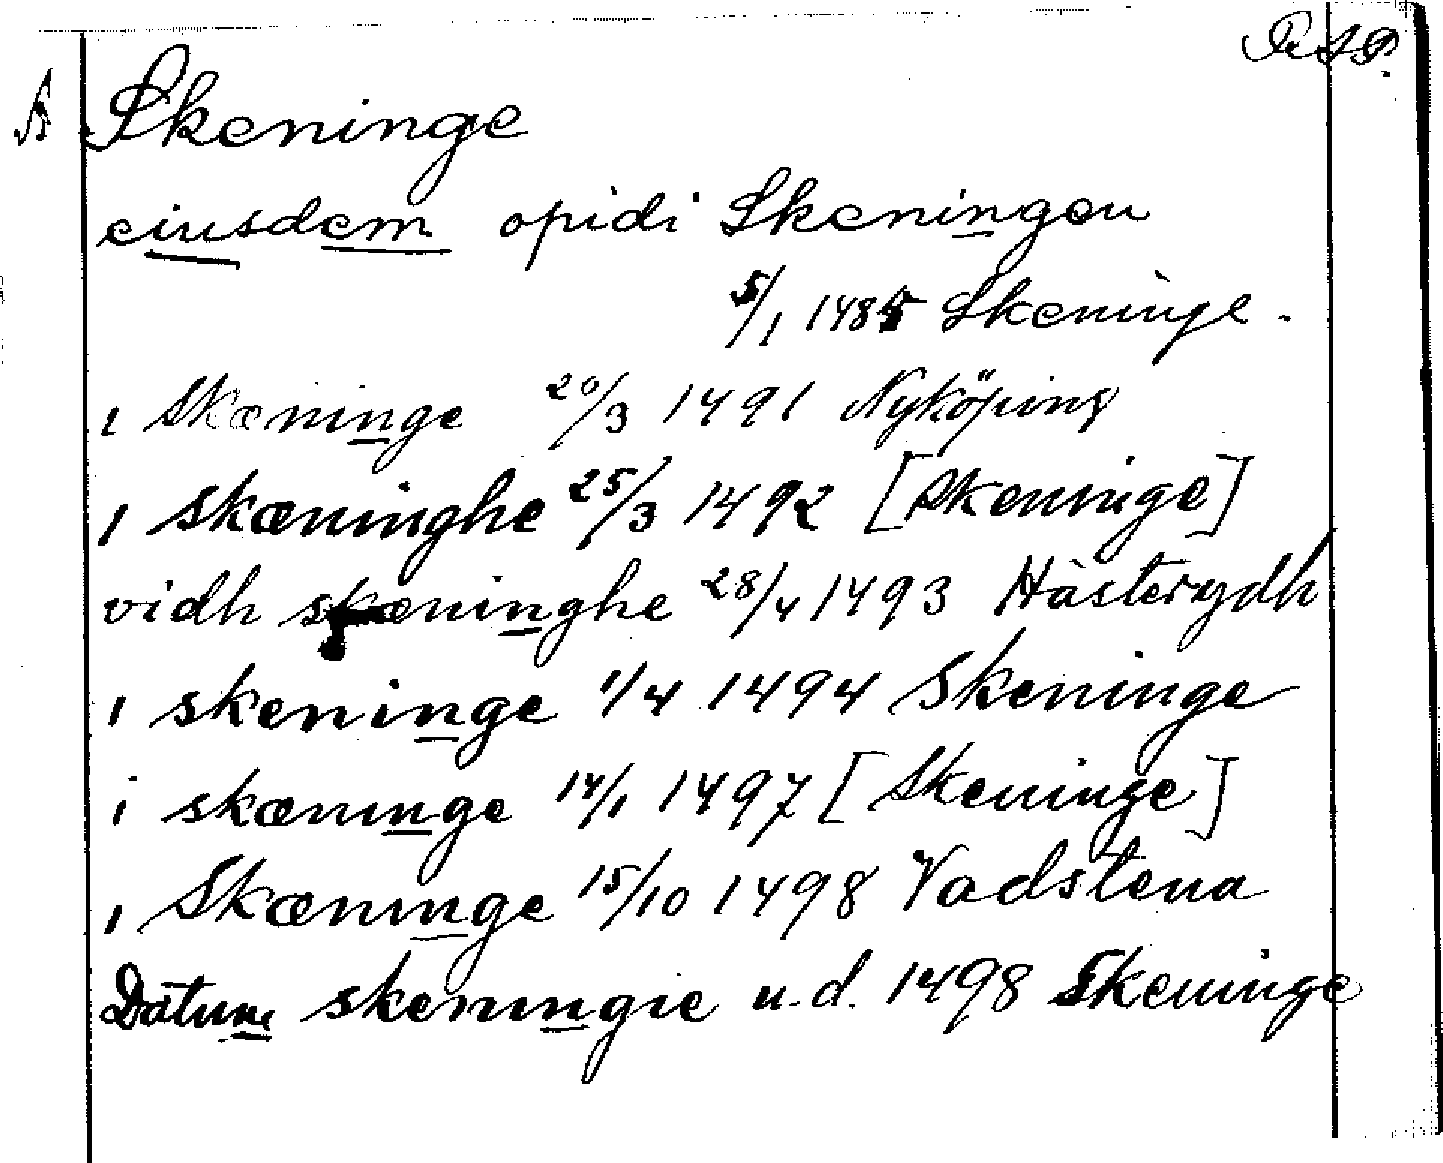 R A P.
A Skeninge
eiusdem opidi Skeningen
5/1 1485 Skeninge.
ı Skæninge 20/3 1491 Nyköping
ı skæninghe 25/3 1492 [Skeninge]
vidh skæninghe 28/4 1493 Hästerydh
ı skeninge 1/4 1494 Skeninge
i skæninge 14/1 1497 [Skeninge]
ı Skæninge 15/10 1498 Vadstena
Datum skeningie u.d. 1498 Skeninge